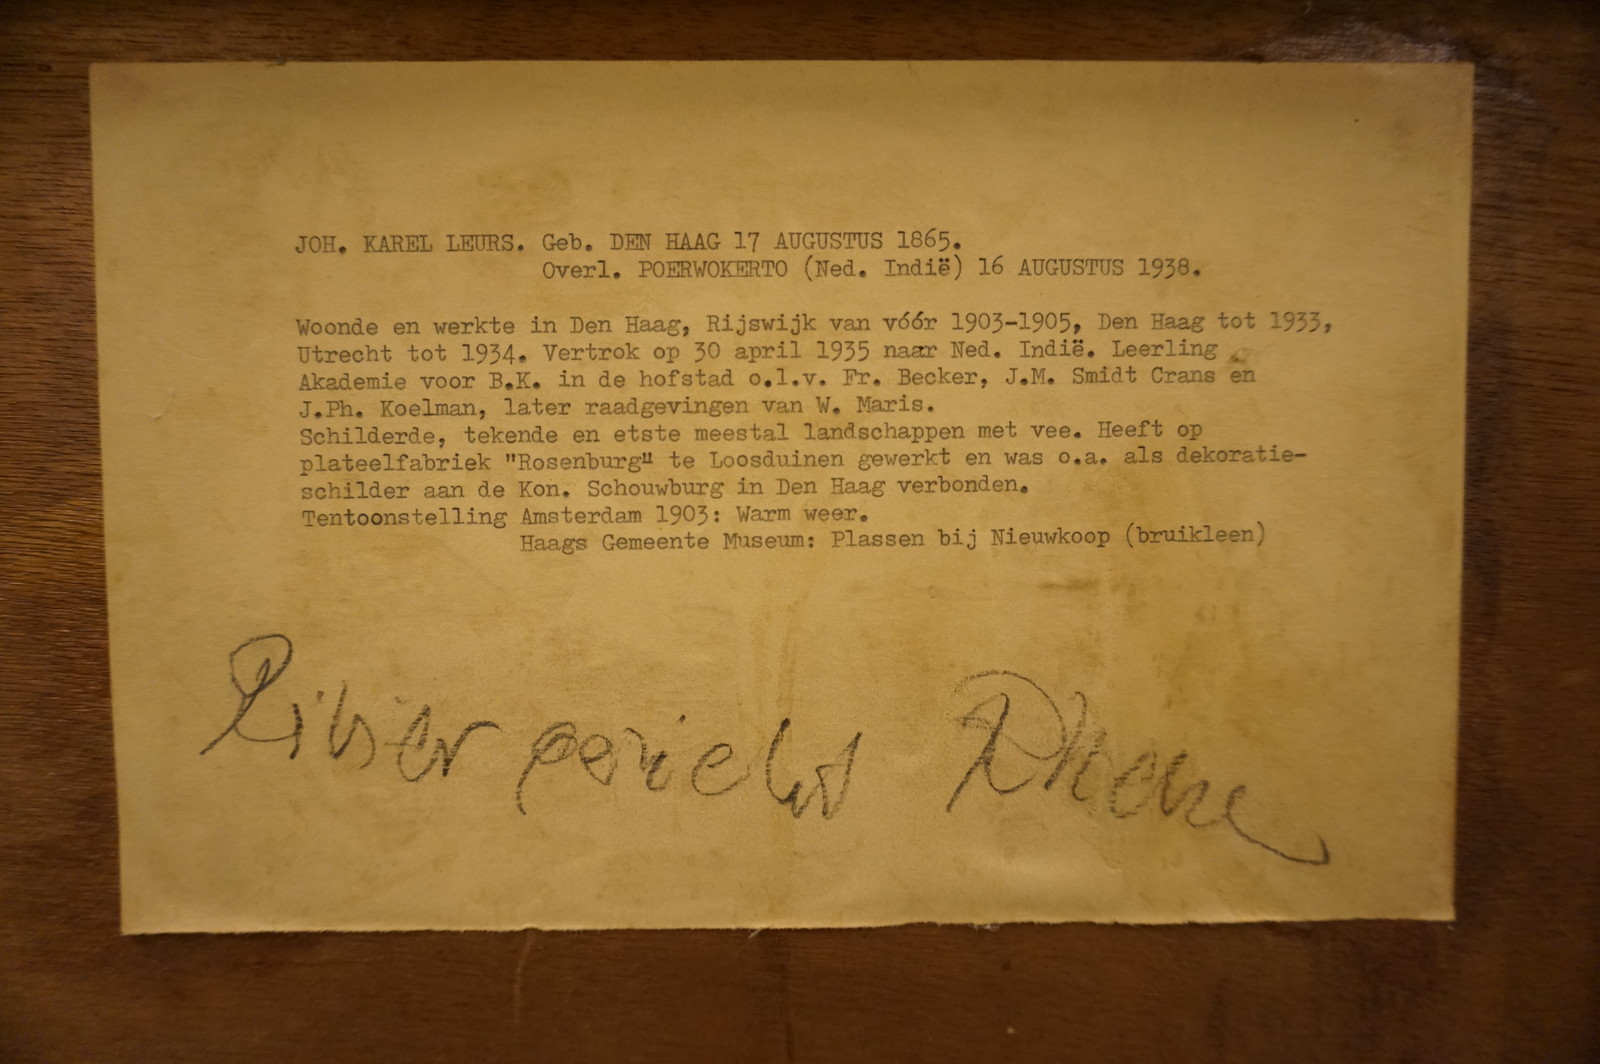 JOH. KAREL LEURS. Geb. DEN HAAG 17 AUGUSTUS 1865.
Overl. POERWOKERTO (Ned. Indië) 16 AUGUSTUS 1938.
Woonde en werkte in Den Haag, Rijswijk van vóór 1903-1905, Den Haag tot 1933,
Utrecht tot 1934. Vertrok op 30 april 1935 naar Ned. Indië. Leerling
Akademie voor B.K. in de hofstad o.l.v. Fr. Becker, J.M. Smidt Crans en
J.Ph. Koelman, later raadgevingen van W. Maris.
Schilderde, tekende en etste meestal landschappen met vee. Heeft op
plateelfabriek "Rosenburg" te Loosduinen gewerkt en was o.a. als dekoratie-
schilder aan de Kon. Schouwburg in Den Haag verbonden.
Tentoonstelling Amsterdam 1903: Warm weer.
Haags Gemeente Museum: Plassen bij Nieuwkoop (bruikleen)
Rivier gezicht